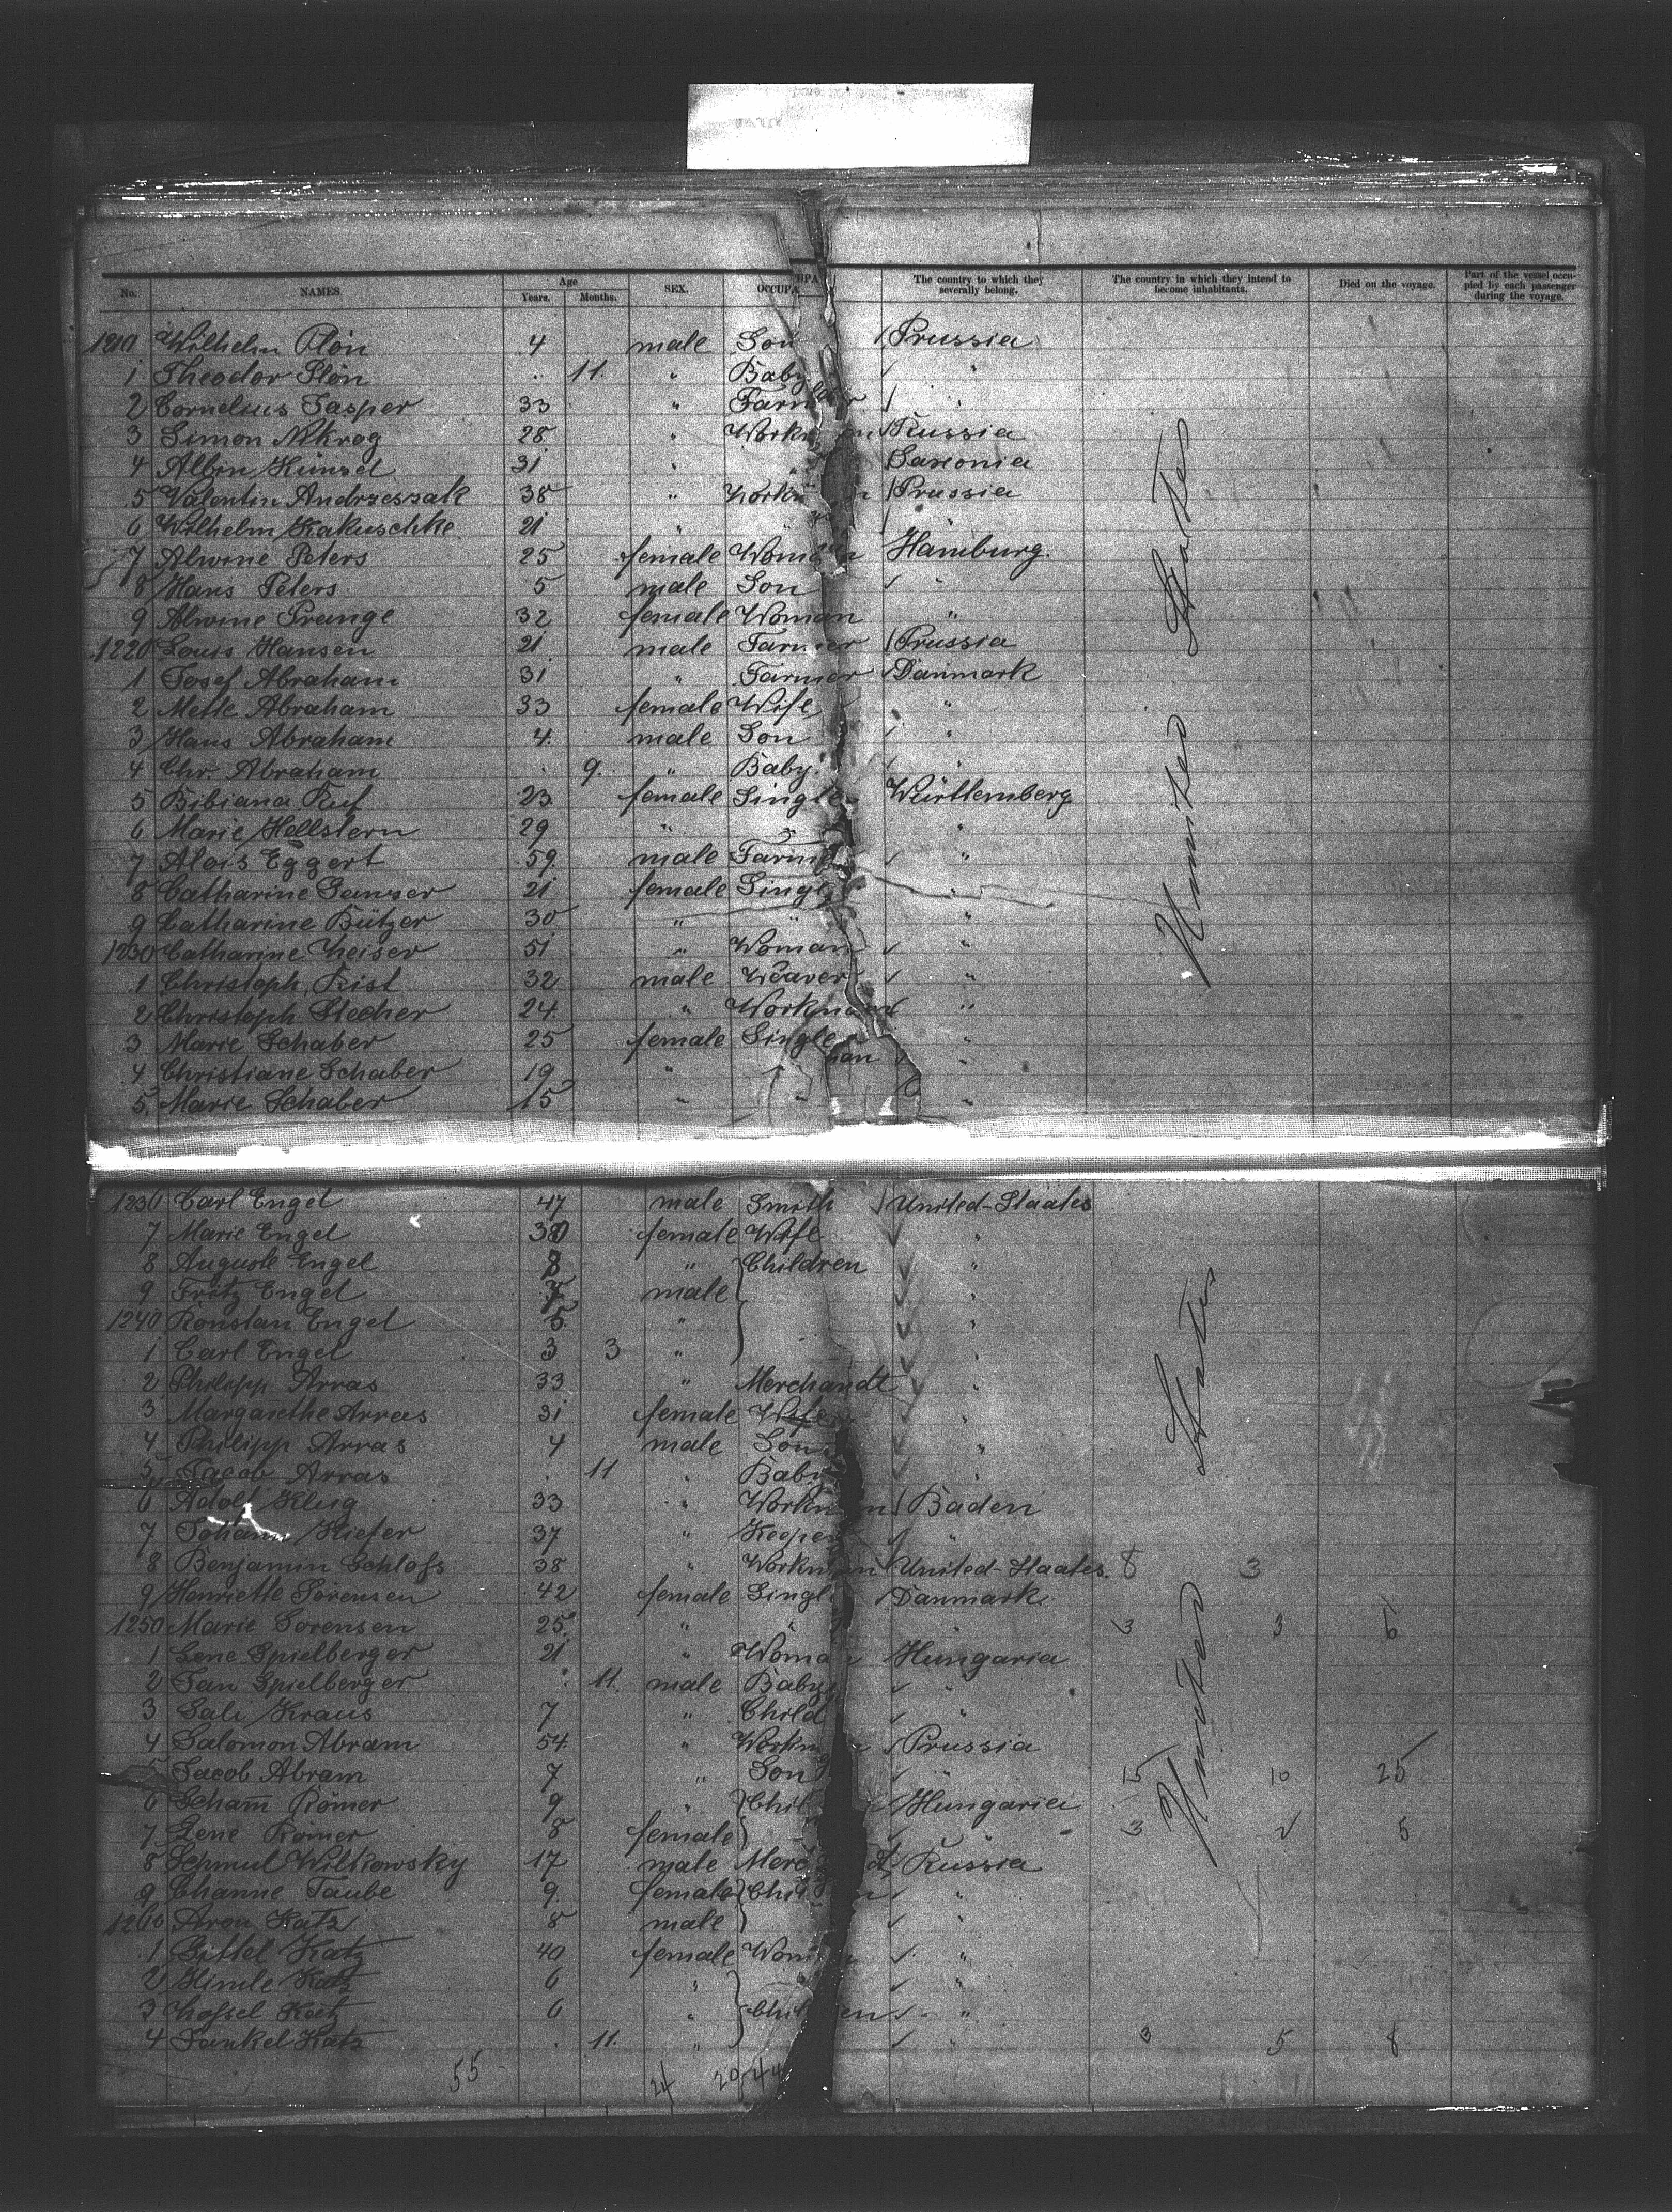 No. NAMES. Age Years. Months. SEX. OCCUPA The country to which they severally belong. The country in which they intend to become inhabitants. Died on the voyage. Part of the vessel occupied by each passenger during the voyage.
1210 Wilhelm Plön 4 male Son Prussia
1 Theodor Plön 11. " Baby "
2 Cornelius Jasper 33 " Farmer "
3 Simon Nekrog 28 " Workman Russia
4 Albin Künzel 31 " " Saxonia
5 Valentin Andrzeszak 38 " Workman Prussia
6 Wilhelm Kakuschke 21 " "
7 Alwine Peters 25 female Woman Hamburg.
8 Hans Peters 5 male Son "
9 Alwine Prange 32 female Woman "
1220 Louis Hansen 21 male Farmer Prussia
1 Josef Abraham 31 " Farmer Danmark
2 Mette Abraham 33 female Wife "
3 Hans Abraham 4. male Son "
4 Chr. Abraham 9. " Baby. "
5 Bibiana Ruf 23 female Single Württemberg
6 Marie Hellstern 29 " " "
7 Alois Eggert 59 male Farmer "
8 Catharine Ganser 21 female Single "
9 Catharine Bützer 30 " " "
1230 Catharine Zeiser 51 " Woman "
1 Christoph Rist 32 male Weaver "
2 Christoph Stecher 24. " Workman "
3 Marie Schaber 25 female Single "
4 Christiane Schaber 19 " "
5. Marie Schaber 15 " " "
United States
1236 Carl Engel 47 male Smith United-Staates
7 Marie Engel 38 female Wife "
8 Auguste Engel 8 " Children "
9 Fritz Engel 7 male "
1240 Konstan Engel 5. " "
1 Carl Engel 3 3 " "
2 Philipp Arras 33 " Merchandt "
3 Margarethe Arras 31 female Wife "
4 Philipp Arras 4 male Son "
5 Jacob Arras 11 " Baby
6 Adolf Klug 33 " Workman Baden
7 Johann Kiefer 37 " Keeper "
8 Benjamin Schloss 38 " Workman United-Staates. 8 3
9 Henriette Sörensen 42 female Single Danmark
1250 Marie Sorensen 25 " " 3 3 6
1 Lene Spielberger 21 " Woman Hungaria
2 Jan Spielberger 11. male Baby "
3 Sali Kraus 7 " Child "
4 Salomon Abram 54 " Workman Prussia
5 Jacob Abram 7 " Son " 15 10 25
6 Scham̄ Römer 9 " Children Hungaria
7 Lene Römer 8 female " 3 2 5
8 Schmul Wilkowsky 17 male Merchandt Russia
9 Channe Taube 9. female Children "
1260 Aron Katz 8 male "
1 Gittel Katz 40 female Woman "
2 Hinde Katz 6 " "
3 Zossel Katz 6 " Children "
4 Jankel Katz 11. " 3 5 8
United States
55 24 20 44